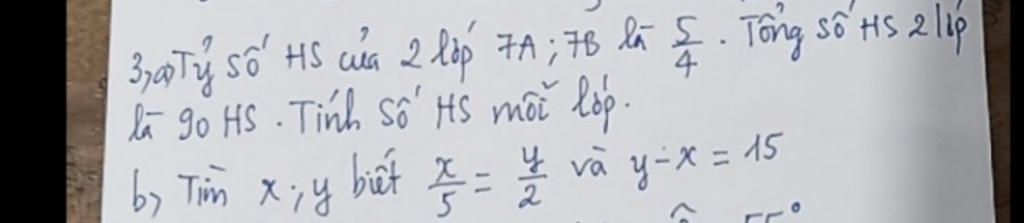 3, a) Tỷ số HS của 2 lớp 7A; 7B là 5/4. Tổng số HS 2 lớp
là 90 HS. Tính số HS mỗi lớp.
b, Tìm x; y biết x/5 = y/2 và y - x = 15
55°